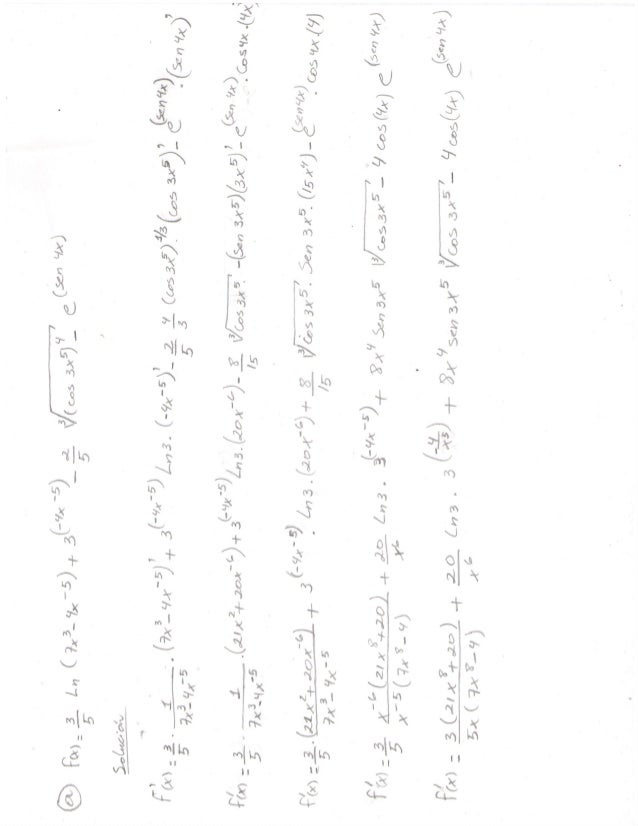 ⓐ f(x) = 3/5 Ln (7x³ - 4x⁻⁵) + 3^(-4x⁻⁵) - 2/5 ∛(cos 3x⁵)⁴ - e^(sen 4x)
Solución
f'(x) = 3/5 · 1/(7x³-4x⁻⁵) · (7x³ - 4x⁻⁵)' + 3^(-4x⁻⁵) Ln3 · (-4x⁻⁵)' - 2/5 4/3 (cos 3x⁵)^(1/3) · (cos 3x⁵)' - e^(sen 4x) · (sen 4x)'
f'(x) = 3/5 · 1/(7x³-4x⁻⁵) · (21x² + 20x⁻⁶) + 3^(-4x⁻⁵) Ln3 · (20x⁻⁶) - 8/15 ∛cos 3x⁵ · -(sen 3x⁵)(3x⁵)' - e^(sen 4x) · cos 4x · (4x)'
f'(x) = 3/5 · (21x² + 20x⁻⁶)/(7x³-4x⁻⁵) + 3^(-4x⁻⁵) · Ln3 · (20x⁻⁶) + 8/15 ∛cos 3x⁵ · Sen 3x⁵ · (15x⁴) - e^(sen 4x) · cos 4x · (4)
f'(x) = 3/5 x⁻⁶(21x⁸+20)/x⁻⁵(7x⁸-4) + 20/x⁶ Ln3 · 3^(-4x⁻⁵) + 8x⁴ Sen 3x⁵ ∛cos 3x⁵ - 4 cos(4x) e^(sen 4x)
f'(x) = 3(21x⁸+20)/5x(7x⁸-4) + 20/x⁶ Ln3 · 3^(-4/x⁵) + 8x⁴ sen 3x⁵ ∛cos 3x⁵ - 4 cos(4x) e^(sen 4x)